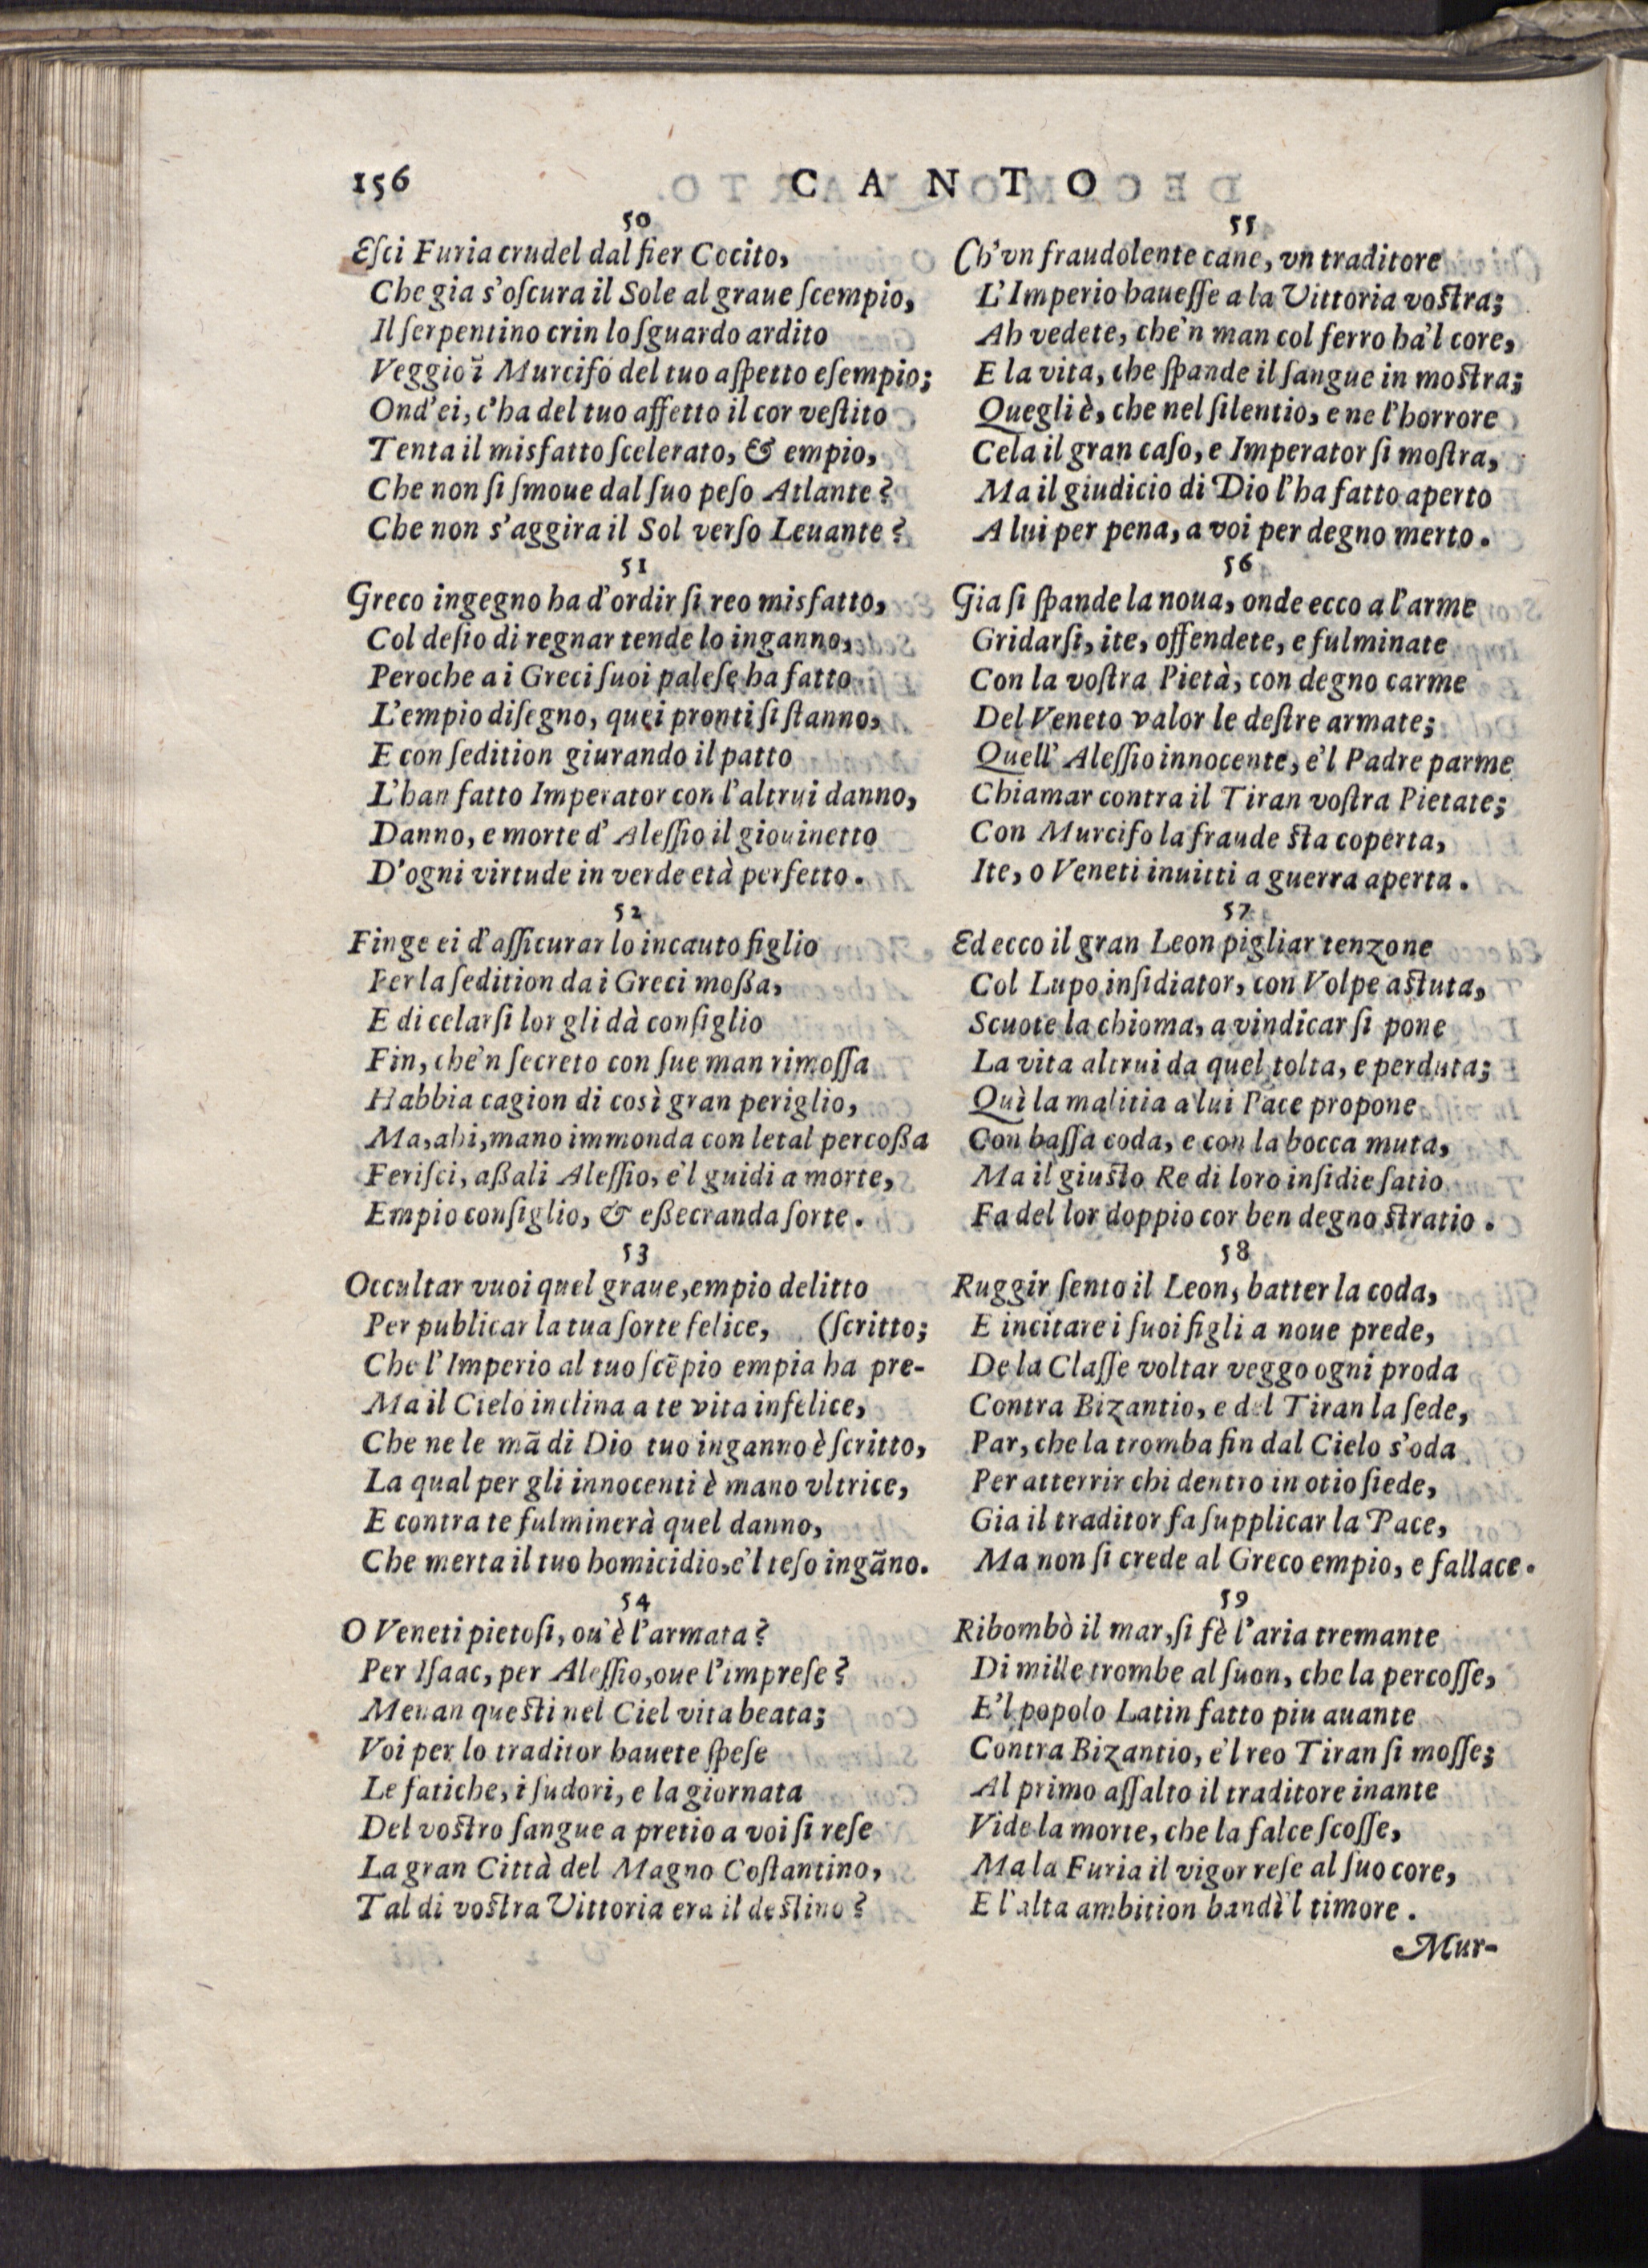 156
CANTO
50
Eſci Furia crudel dal fier Cocito,
Che gia s'oſcura il Sole al graue ſcempio,
Il ſerpentino crin lo ſguardo ardito
Veggio ĩ Murcifo del tuo aſpetto eſempio;
Ond'ei, c'ha del tuo affetto il cor veſtito
Tenta il misfatto ſcelerato, & empio,
Che non ſi ſmoue dal ſuo peſo Atlante?
Che non s'aggira il Sol verſo Leuante?
51
Greco ingegno ha d'ordir ſi reo misfatto,
Col deſio di regnar tende lo inganno,
Peroche a i Greci ſuoi paleſe ha fatto
L'empio diſegno, quei pronti ſi ſtanno,
E con ſedition giurando il patto
L'han fatto Imperator con l'altrui danno,
Danno, e morte d'Aleſſio il giouinetto
D'ogni virtude in verde età perfetto.
52
Finge ei d'aſſicurar lo incauto figlio
Per la ſedition da i Greci moßa,
E di celarſi lor gli dà conſiglio
Fin, che'n ſecreto con ſue man rimoſſa
Habbia cagion di così gran periglio,
Ma, ahi, mano immonda con letal percoßa
Feriſci, aßali Aleſſio, e'l guidi a morte,
Empio conſiglio, & eßecranda ſorte.
53
Occultar vuoi quel graue, empio delitto
Per publicar la tua ſorte felice, (ſcritto;
Che l'Imperio al tuo ſcẽpio empia ha pre-
Ma il Cielo inclina a te vita infelice,
Che ne le mã di Dio tuo inganno è ſcritto,
La qual per gli innocenti è mano vltrice,
E contra te fulminerà quel danno,
Che merta il tuo homicidio, e'l teſo ingãno.
54
O Veneti pietoſi, ou'è l'armata?
Per Iſaac, per Aleſſio, oue l'impreſe?
Menan queſti nel Ciel vita beata;
Voi per lo traditor hauete ſpeſe
Le fatiche, i ſudori, e la giornata
Del voſtro ſangue a pretio a voi ſi reſe
La gran Città del Magno Coſtantino,
Tal di voſtra Vittoria era il deſtino?
55
Ch'vn fraudolente cane, vn traditore
L'Imperio haueſſe a la Vittoria voſtra;
Ah vedete, che'n man col ferro ha'l core,
E la vita, che ſpande il ſangue in moſtra;
Quegli è, che nel ſilentio, e ne l'horrore
Cela il gran caſo, e Imperator ſi moſtra,
Ma il giudicio di Dio l'ha fatto aperto
A lui per pena, a voi per degno merto.
56
Gia ſi ſpande la noua, onde ecco a l'arme
Gridarſi, ite, offendete, e fulminate
Con la voſtra Pietà, con degno carme
Del Veneto valor le deſtre armate;
Quell'Aleſſio innocente, e'l Padre parme
Chiamar contra il Tiran voſtra Pietate;
Con Murcifo la fraude ſta coperta,
Ite, o Veneti inuitti a guerra aperta.
57
Ed ecco il gran Leon pigliar tenzone
Col Lupo inſidiator, con Volpe aſtuta,
Scuote la chioma, a vindicar ſi pone
La vita altrui da quel tolta, e perduta;
Quì la malitia a lui Pace propone
Con baſſa coda, e con la bocca muta,
Ma il giuſto Re di loro inſidie ſatio
Fa del lor doppio cor ben degno ſtratio.
58
Ruggir ſento il Leon, batter la coda,
E incitare i ſuoi figli a noue prede,
De la Claſſe voltar veggo ogni proda
Contra Bizantio, e del Tiran la ſede,
Par, che la tromba fin dal Cielo s'oda
Per atterrir chi dentro in otio ſiede,
Gia il traditor fa ſupplicar la Pace,
Ma non ſi crede al Greco empio, e fallace.
59
Ribombò il mar, ſi fè l'aria tremante
Di mille trombe al ſuon, che la percoſſe,
E'l popolo Latin fatto piu auante
Contra Bizantio, e'l reo Tiran ſi moſſe;
Al primo aſſalto il traditore inante
Vide la morte, che la falce ſcoſſe,
Ma la Furia il vigor reſe al ſuo core,
E l'alta ambition bandì'l timore.
Mur-